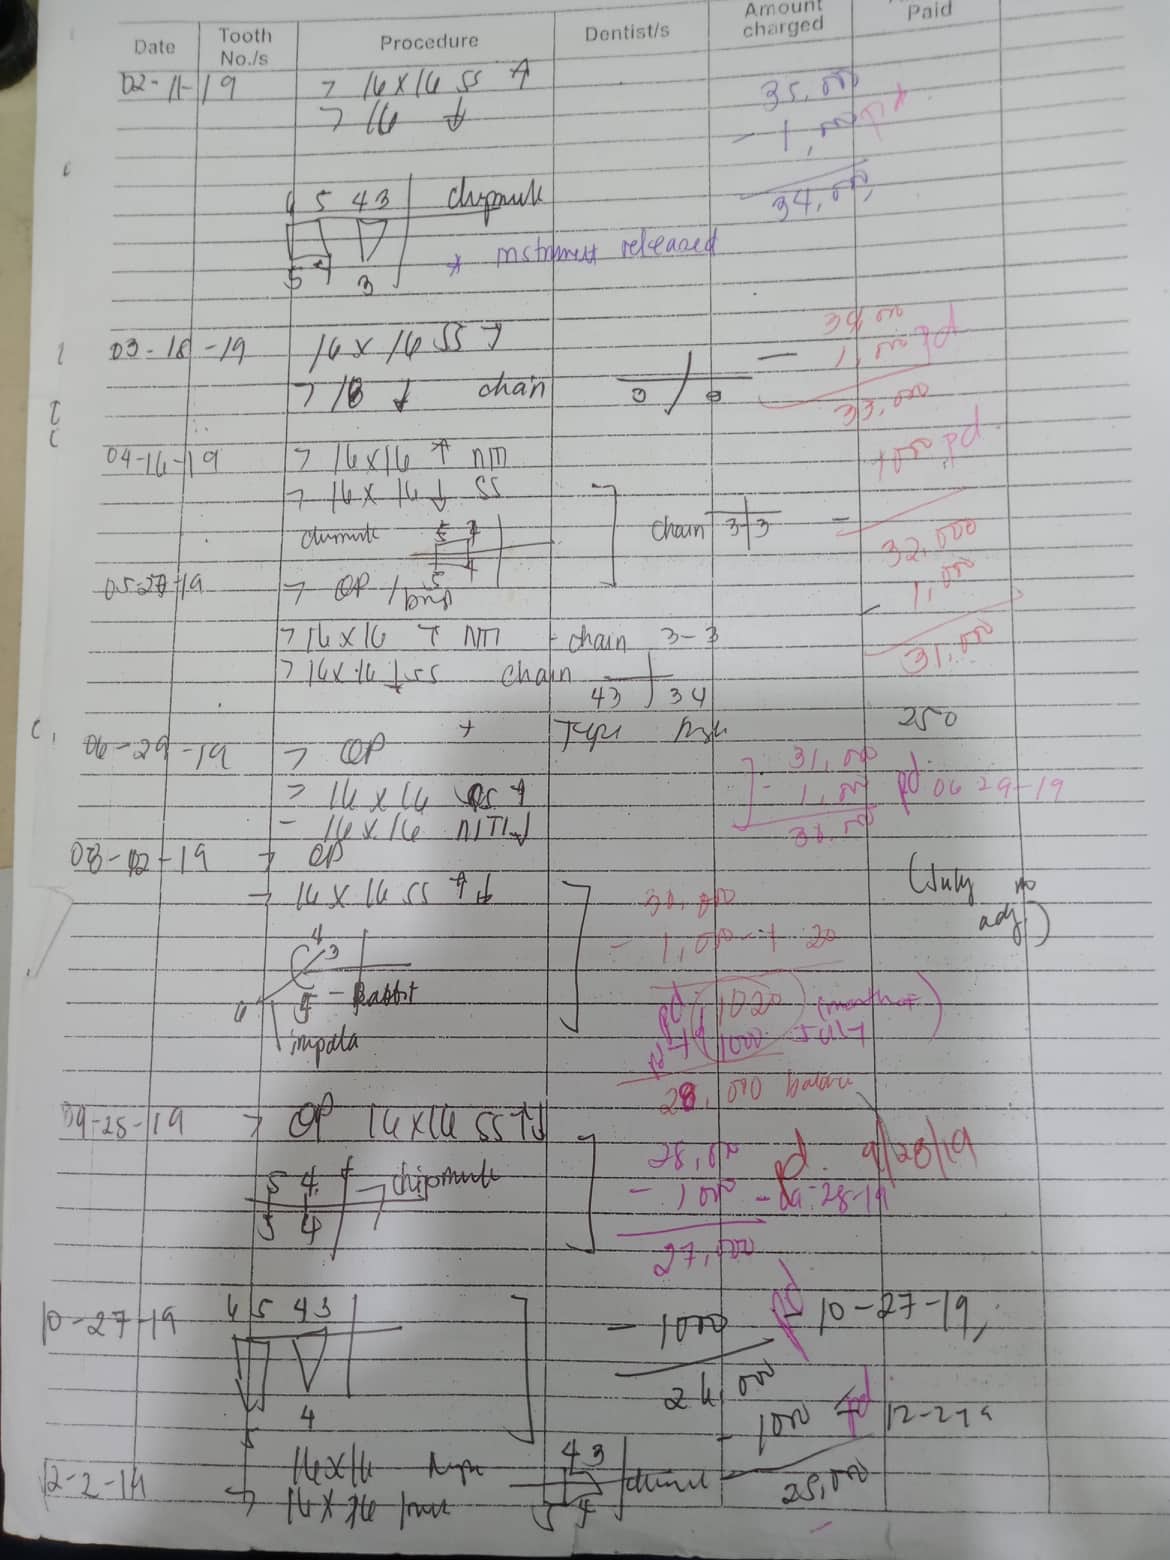 Date Tooth No./s Procedure Dentist/s Amount charged Paid
02-11-19 > 16x16 ss ↑ 35,000
> 16 ↓ - 1,000 pd
34,000
6 5 4 3 chipmunk
5 4 3 * instrument released
03-18-19 16x16 SS ↑ 34,000
> 18 ↓ chain 3 3 — 1,000 pd
33,000
04-16-19 > 16x16 ↑ NITI 1000 pd
> 16x16 ↓ SS
5 4 chain 3 3 — 32,000
5 4
05-27-19 > OP 1,000
> 16x16 ↑ NITI - chain 3-3 31,000
> 16x16 ↓ ss chain
43 34
+ 250
06-29-19 > OP 31,000
> 16x16 ss ↑ - 1,000 pd 06 29-19
- 16x16 NITI ↓ 30,000
08-02-19 > OP (July no adj)
→ 16x16 ss ↑↓ 30,000
4 3 - 1,000 + 20
6 4 - Rabbit pd 1020 (month of
impala pd 1000 July)
28,000 balance
09-28-19 > OP 16x16 SS ↑↓
5 4 chipmunk 28,000 pd. 9/28/19
5 4 - 1000 - 09-28-19
27,000
10-27-19 6 5 4 3 - 1000 pd 10-27-19,
26,000
5 4 - 1000 pd 12-2-19
12-2-19 16x16 4 3 25,000
→ 16x16 5 4